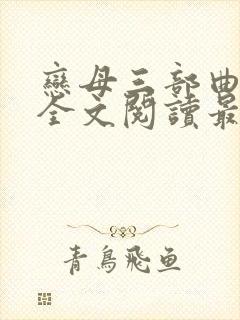 戀母三部曲
全文閱讀最
青鳥飛鱼